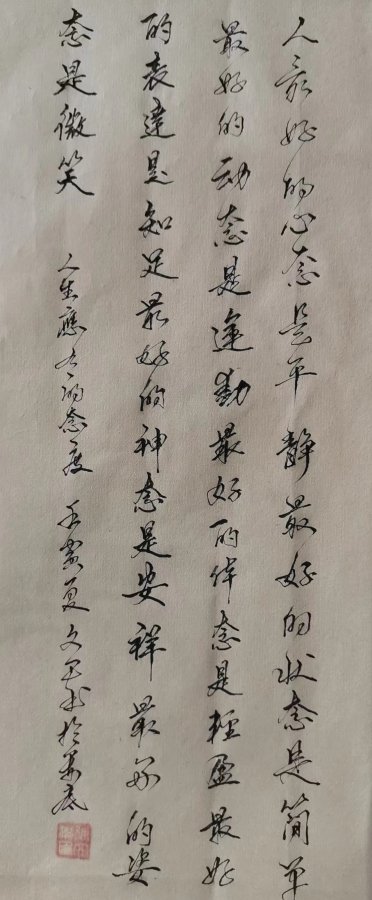 人最好的心态是平静最好的状态是简单
最好的动态是運動最好的体态是輕盈最好
的表達是知足最好的神态是安祥最好的姿
态是微笑
人生應有的态度 壬寅夏文军书於婁底